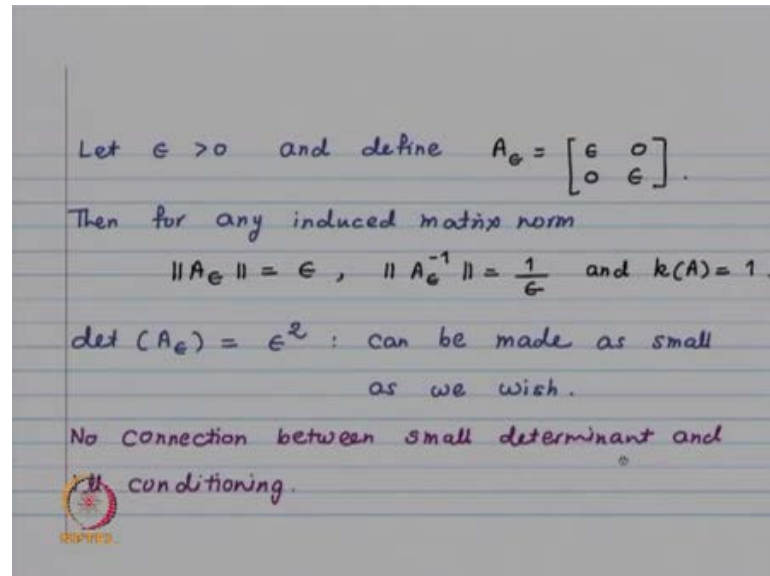 Let ϵ > 0 and define A_ϵ = [ϵ 0; 0 ϵ].
Then for any induced matrix norm
||A_ϵ|| = ϵ, ||A_ϵ^{-1}|| = 1/ϵ and k(A) = 1.
det (A_ϵ) = ϵ^2 : can be made as small
as we wish.
No connection between small determinant and
ill conditioning.
NPTEL